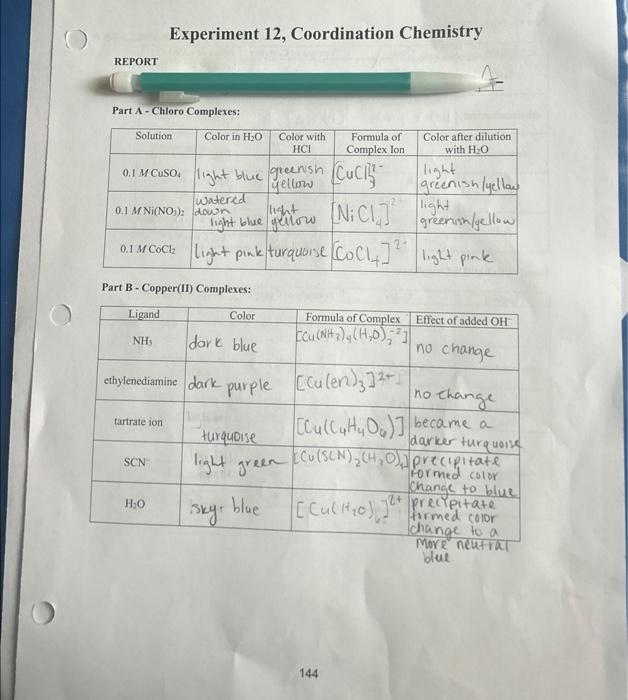 Experiment 12, Coordination Chemistry
REPORT
Part A - Chloro Complexes:
Solution Color in H₂O Color with HCl Formula of Complex Ion Color after dilution with H₂O
0.1 M CuSO₄ light blue greenish yellow light greenish/yellow
0.1 M Ni(NO₃)₂ watered down light blue light yellow [NiCl₄]²⁻ light greenish/yellow
0.1 M CoCl₂ light pink turquoise [CoCl₄]²⁻ light pink
Part B - Copper(II) Complexes:
Ligand Color Formula of Complex Effect of added OH⁻
NH₃ dark blue [Cu(NH₃)₄(H₂O)₂⁻²] no change
ethylenediamine dark purple [Cu(en)₃]²⁺ no change
tartrate ion turquoise [Cu(C₄H₄O₆)] became a darker turquoise
SCN⁻ light green precipitate formed color change to blue
H₂O sky blue [Cu(H₂O)₆]²⁺ precipitate formed color change to a more neutral blue
144